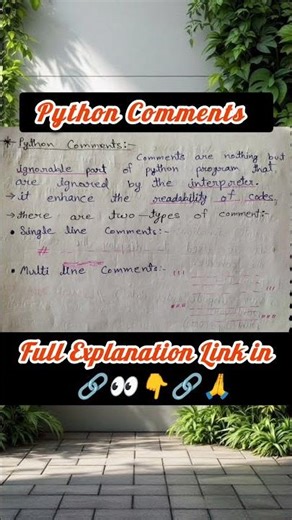 Python Comments
* Python Comments:-
Comments are nothing but
ignorable part of python program that
are ignored by the interpreter.
→ it enhance the readability of codes,
→ there are two-types of comment:-
• Single line Comments:-
#
• Multi line Comments:-
'''
'''
"""
"""
Full Explanation Link in
🔗👀👇🔗🙏